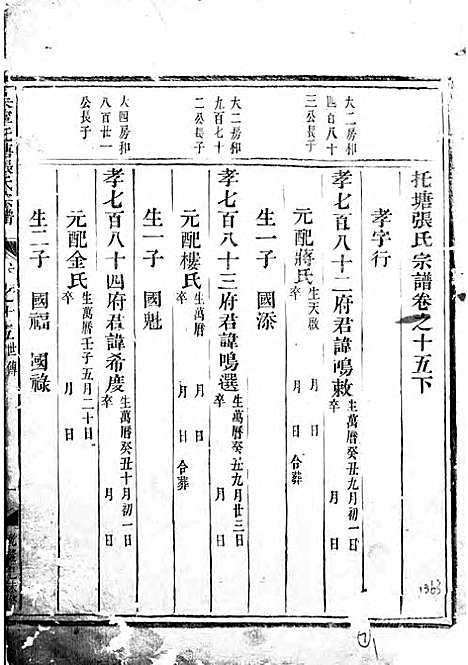 托塘張氏宗譜卷之十五下
孝字行
大二房和
四百八十
三公長子
孝七百八十二府君諱鳴敕
生萬曆癸丑九月初一日
卒 月 日
元配蔣氏
生天啟
卒 月 日 合葬
生一子 國添
大二房和
九百七十
二公長子
孝七百八十三府君諱鳴選
生萬曆癸丑九月廿三日
卒 月 日
元配樓氏
生
卒 月 日 合葬
生一子 國魁
大四房和
八百廿一
公長子
孝七百八十四府君諱希慶
生萬曆癸丑十月初一日
卒 月 日
元配金氏
生萬曆壬子五月二十日
卒 月 日
生二子 國福 國祿
托塘張氏宗譜
卷之十五 世傳
1363